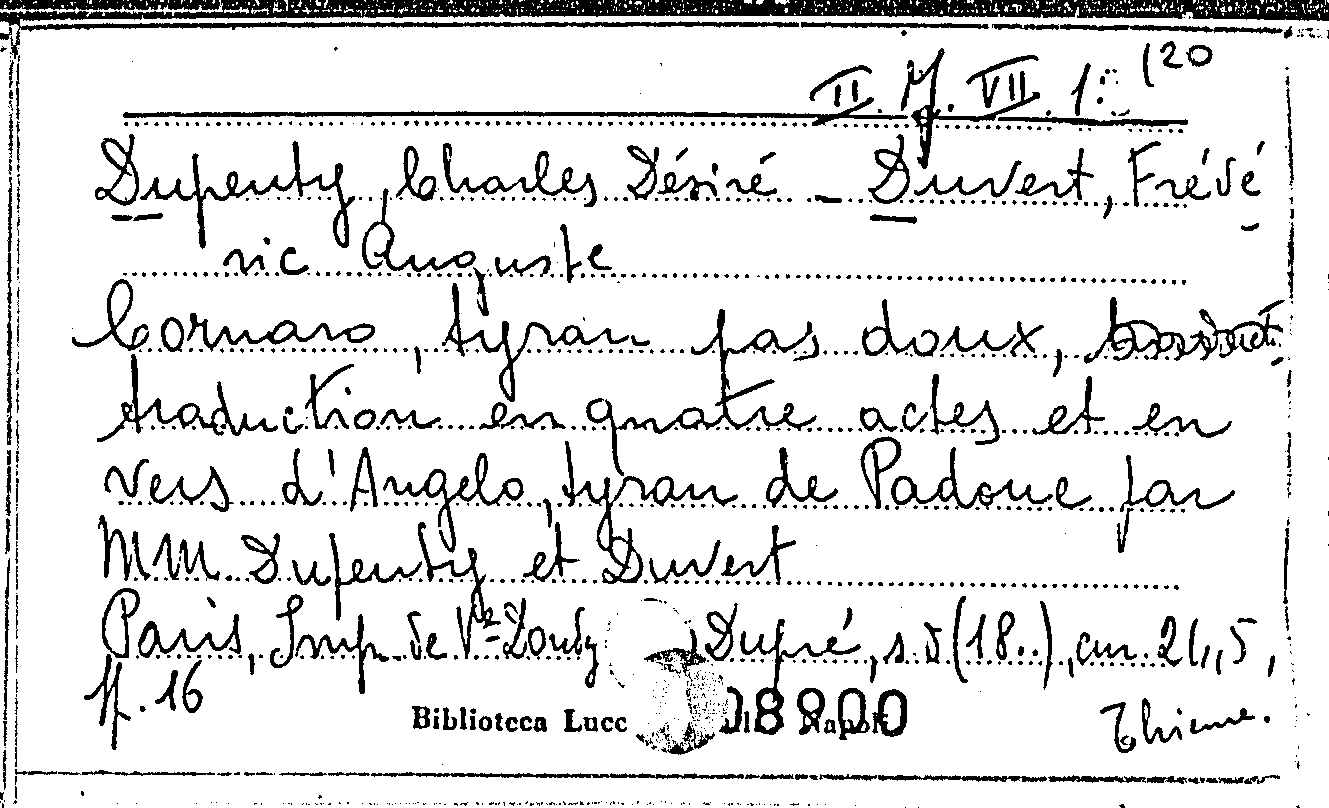 II. M. VII. 1. (20
Dupeuty, Charles Désiré - Duvert, Frédé
ric Auguste
Cornaro, tyran pas doux,
traduction en quatre actes et en
vers d'Angelo, tyran de Padoue par
MM. Dupeuty et Duvert
Paris, Imp. de Vᵉ Dondey Dupré, s. d (18..), cm. 21,,5,
pp. 16
Biblioteca Lucc Napoli 08900
Thieme.